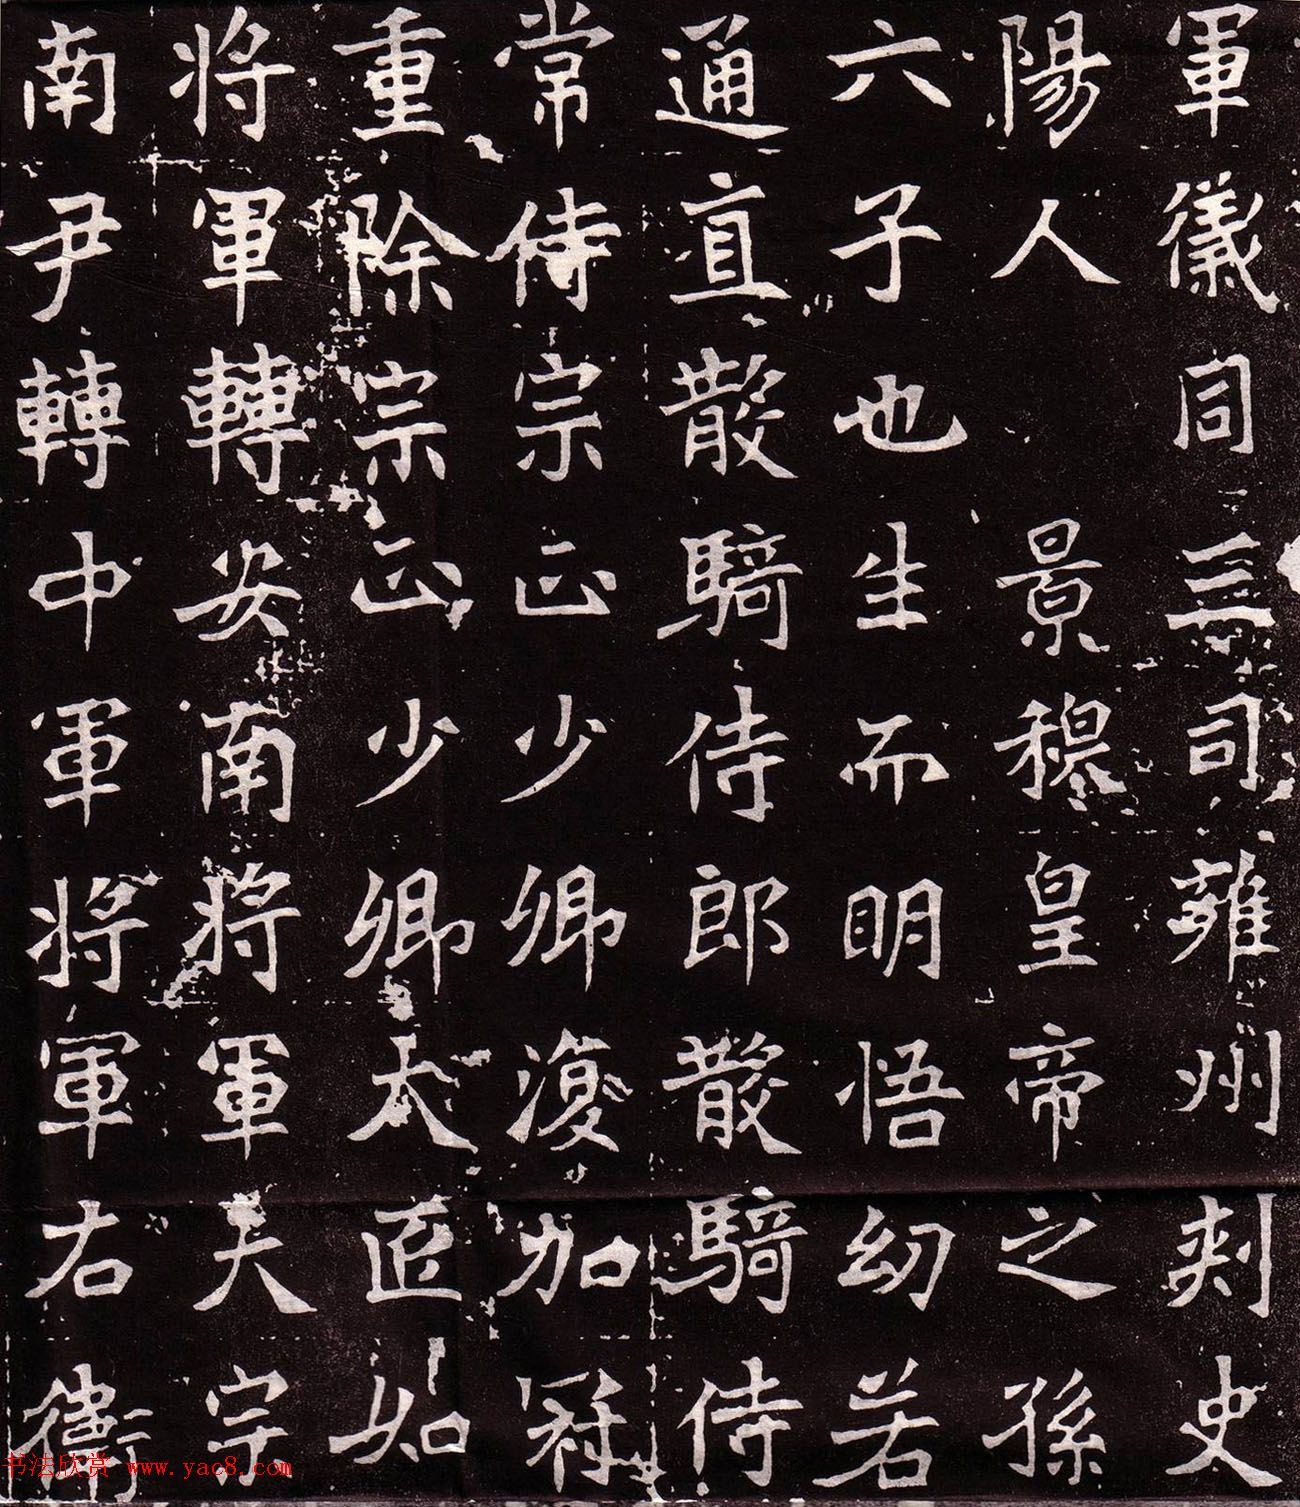 軍儀同三司雍州刺史
陽人景穆皇帝之孫
六子也生而明悟幼若
通直散騎侍郎散騎侍
常侍宗正少卿復加冠
重除宗正少卿太迢如
將軍轉安南將軍大宗
南尹轉中軍將軍右衛
书法欣赏 www.yac8.com